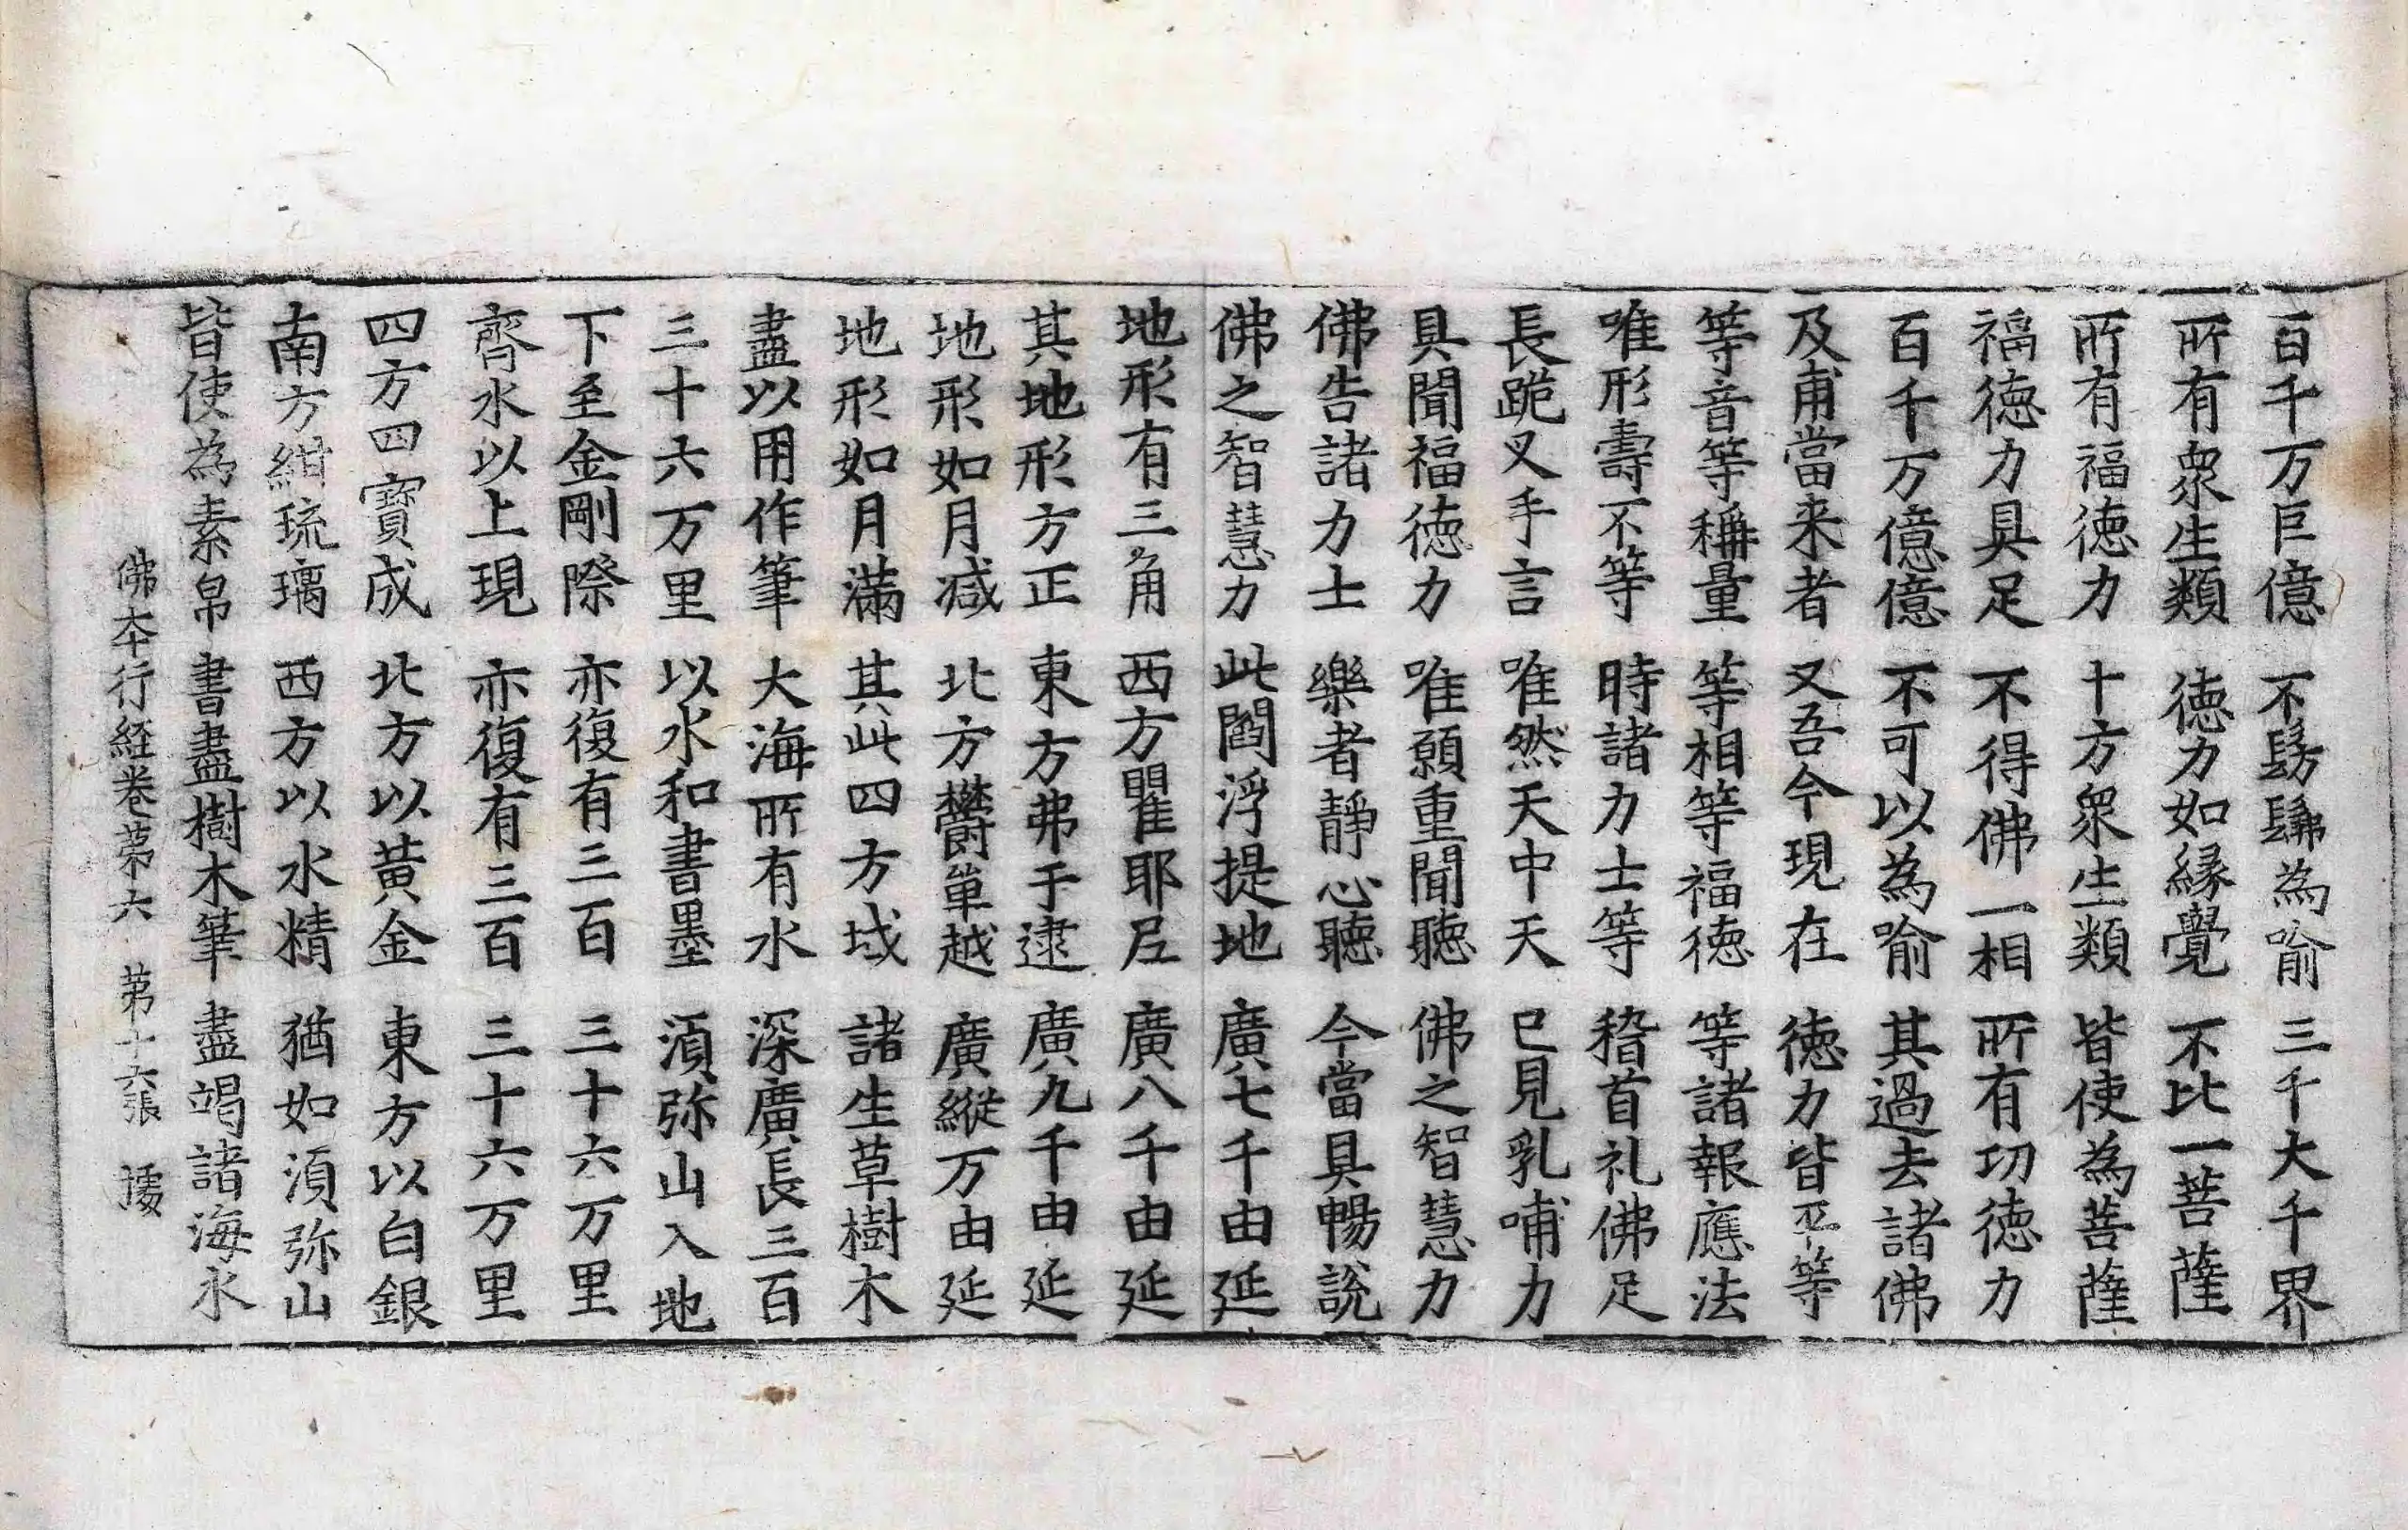 百千万巨億 不髣髴為喻 三千大千界
所有衆生類 德力如緣覺 不比一菩薩
所有福德力 十方衆生類 皆使為菩薩
福德力具足 不得佛一相 所有功德力
百千万億億 不可以為喻 其過去諸佛
及甫當来者 又吾今現在 德力皆平等
等音等稱量 等相等福德 等諸報應法
唯形壽不等 時諸力士等 稽首礼佛足
長跪叉手言 唯然天中天 已見乳哺力
具聞福德力 唯願重聞聽 佛之智慧力
佛告諸力士 樂者靜心聽 今當具暢說
佛之智慧力 此閻浮提地 廣七千由延
地形有三角 西方瞿耶尼 廣八千由延
其地形方正 東方弗于逮 廣九千由延
地形如月減 北方欝單越 廣縱万由延
地形如月滿 其此四方域 諸生草樹木
盡以用作筆 大海所有水 深廣長三百
三十六万里 以水和書墨 須弥山入地
下至金剛際 亦復有三百 三十六万里
齊水以上現 亦復有三百 三十六万里
四方四寶成 北方以黃金 東方以白銀
南方紺琉璃 西方以水精 猶如須弥山
皆使為素帛 書盡樹木筆 盡竭諸海水
佛本行経卷第六 第十六張